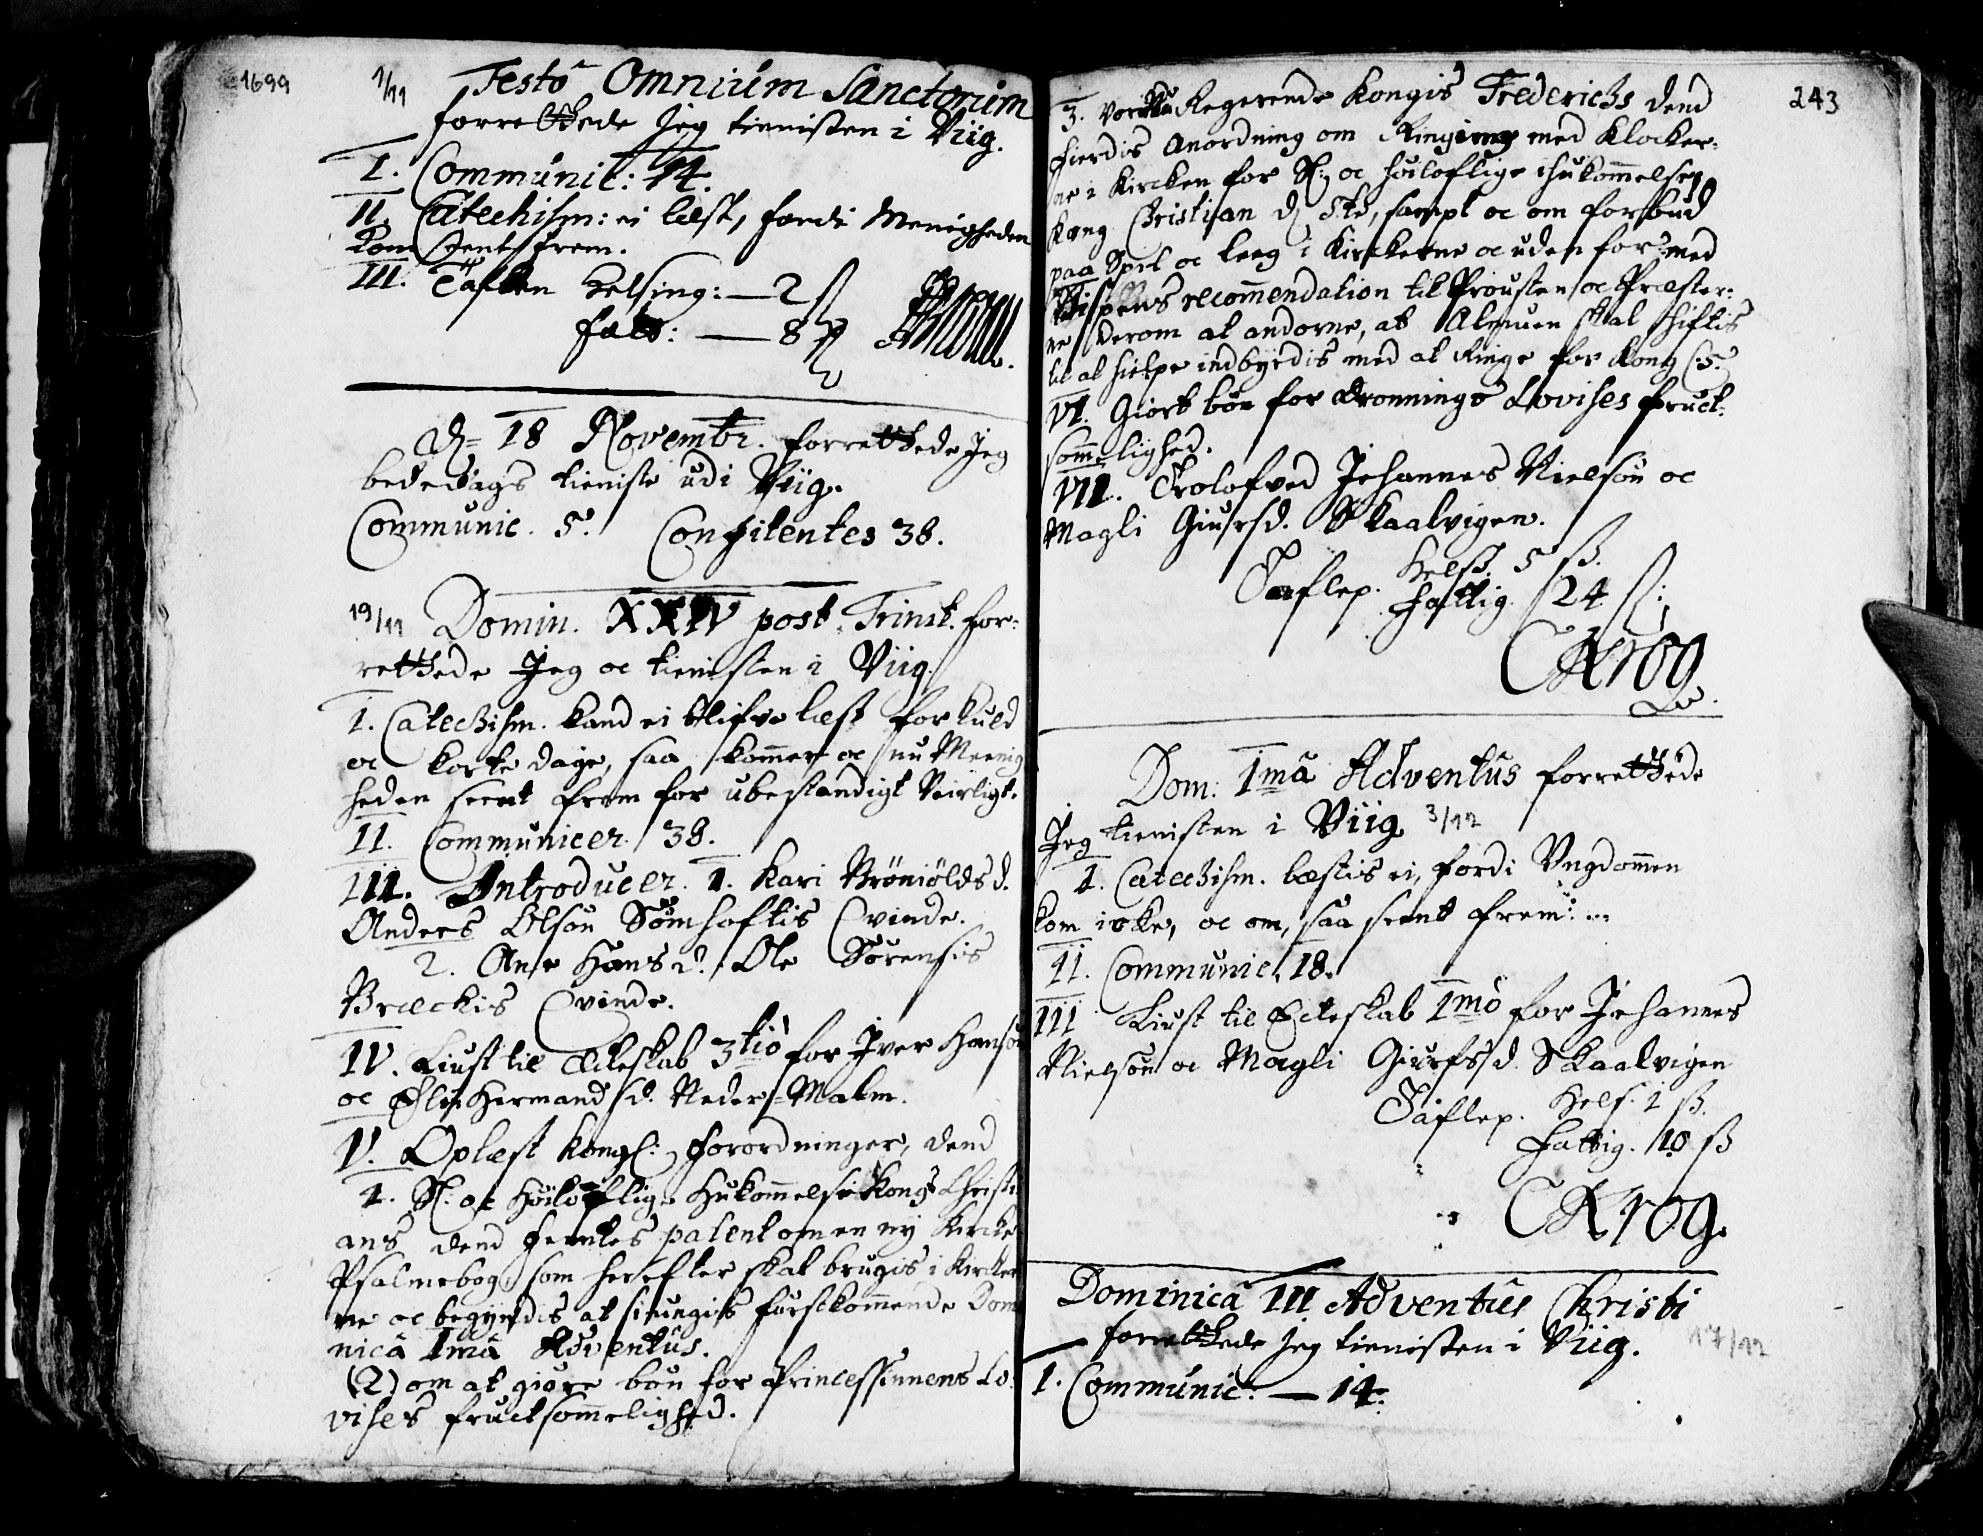 1699
1/11 Festo Omnium Sanctorum
forrettede Jeg tienisten i Viig.
I. Communic: 14.
II. Catechism: ei læst, fordi Menigheden
kom seent frem.
III. Taflen Helsing: — 2 ß
fatt: — 8 ß
D= 18 Novembr. forrettede Jeg
bededags tieniste udi Viig.
Communic. 5. Confitentes 38.
19/11 Domin. XXIV post Trinit. for-
rettede Jeg oc tienisten i Viig.
I. Catechism. kand ei blifve læst for kuld
oc korte dage, saa kommer oc nu Menig
heden seent frem for ubestandigt Veirligt.
II. Communicer. 38.
III. Introducer. 1. Kari Bröniöldsd.
Anders Olsøn Sømhoftis Qvinde.
2. Ane Hansd. Ole Sørensis
Bræckis Qvinde.
IV. Liust til Ecteskab 3tiò for Iver Hansøn
oc Elin Hermandsd. Neder-Malm.
V. Oplæst kongl: forordninger, dend
1. Sl. oc Høilofflig Hukommelse Kong Christi
ans dend femtes patent om en ny Kircke
Psalmebog som herefter skal brugis i Kircker
ne oc begyndis at siungis førstkommende Domi
nicâ 1mâ Adventûs.
(2) om at giøre bøn for Princessinnens Lo-
vises fructsommelighed.
243
3. vor nu Regerende Kongis Frederichs dend
fierdis Anordning om Ringing med Klocker-
ne i Kircken for Sl: oc høiloflige ihukommelse
Kong Christian d 5te, sampt oc om forbud
paa Spil oc leeg i Kirckerne oc uden for: med
Bispens recommendation til Prousten oc Præster-
ne derom at andorne, at Almuen skal skiftis
til at hielpe indbyrdis med at Ringe for Kong C5.
VI. Giort bøn for Dronning Lovises fruct-
sommelighed.
VII. Trolofved Johannes Nielsøn oc
Magli Giursd. Skaalvigen.
Taflep. Hels. 5 ß.
Fattig. 24 ß:
CKrog
Dom: 1mâ Adventûs forrettede
Jeg tienisten i Viig 3/12
I. Catechism. læstis ei, fordi Ungdommen
kom icke, oc om, saa seent frem: ...
II. Communic. 18.
III Liust til Ecteskab 1mò for Johannes
Nielsøn oc Magli Giursd. Skaalvigen
Taflep. Hels. 1 ß.
Fattig. 10 ß
CKrog.
Dominicâ III Adventûs Christi
forrettede Jeg tienisten i Viig. 17/12
I. Communic: — 14.